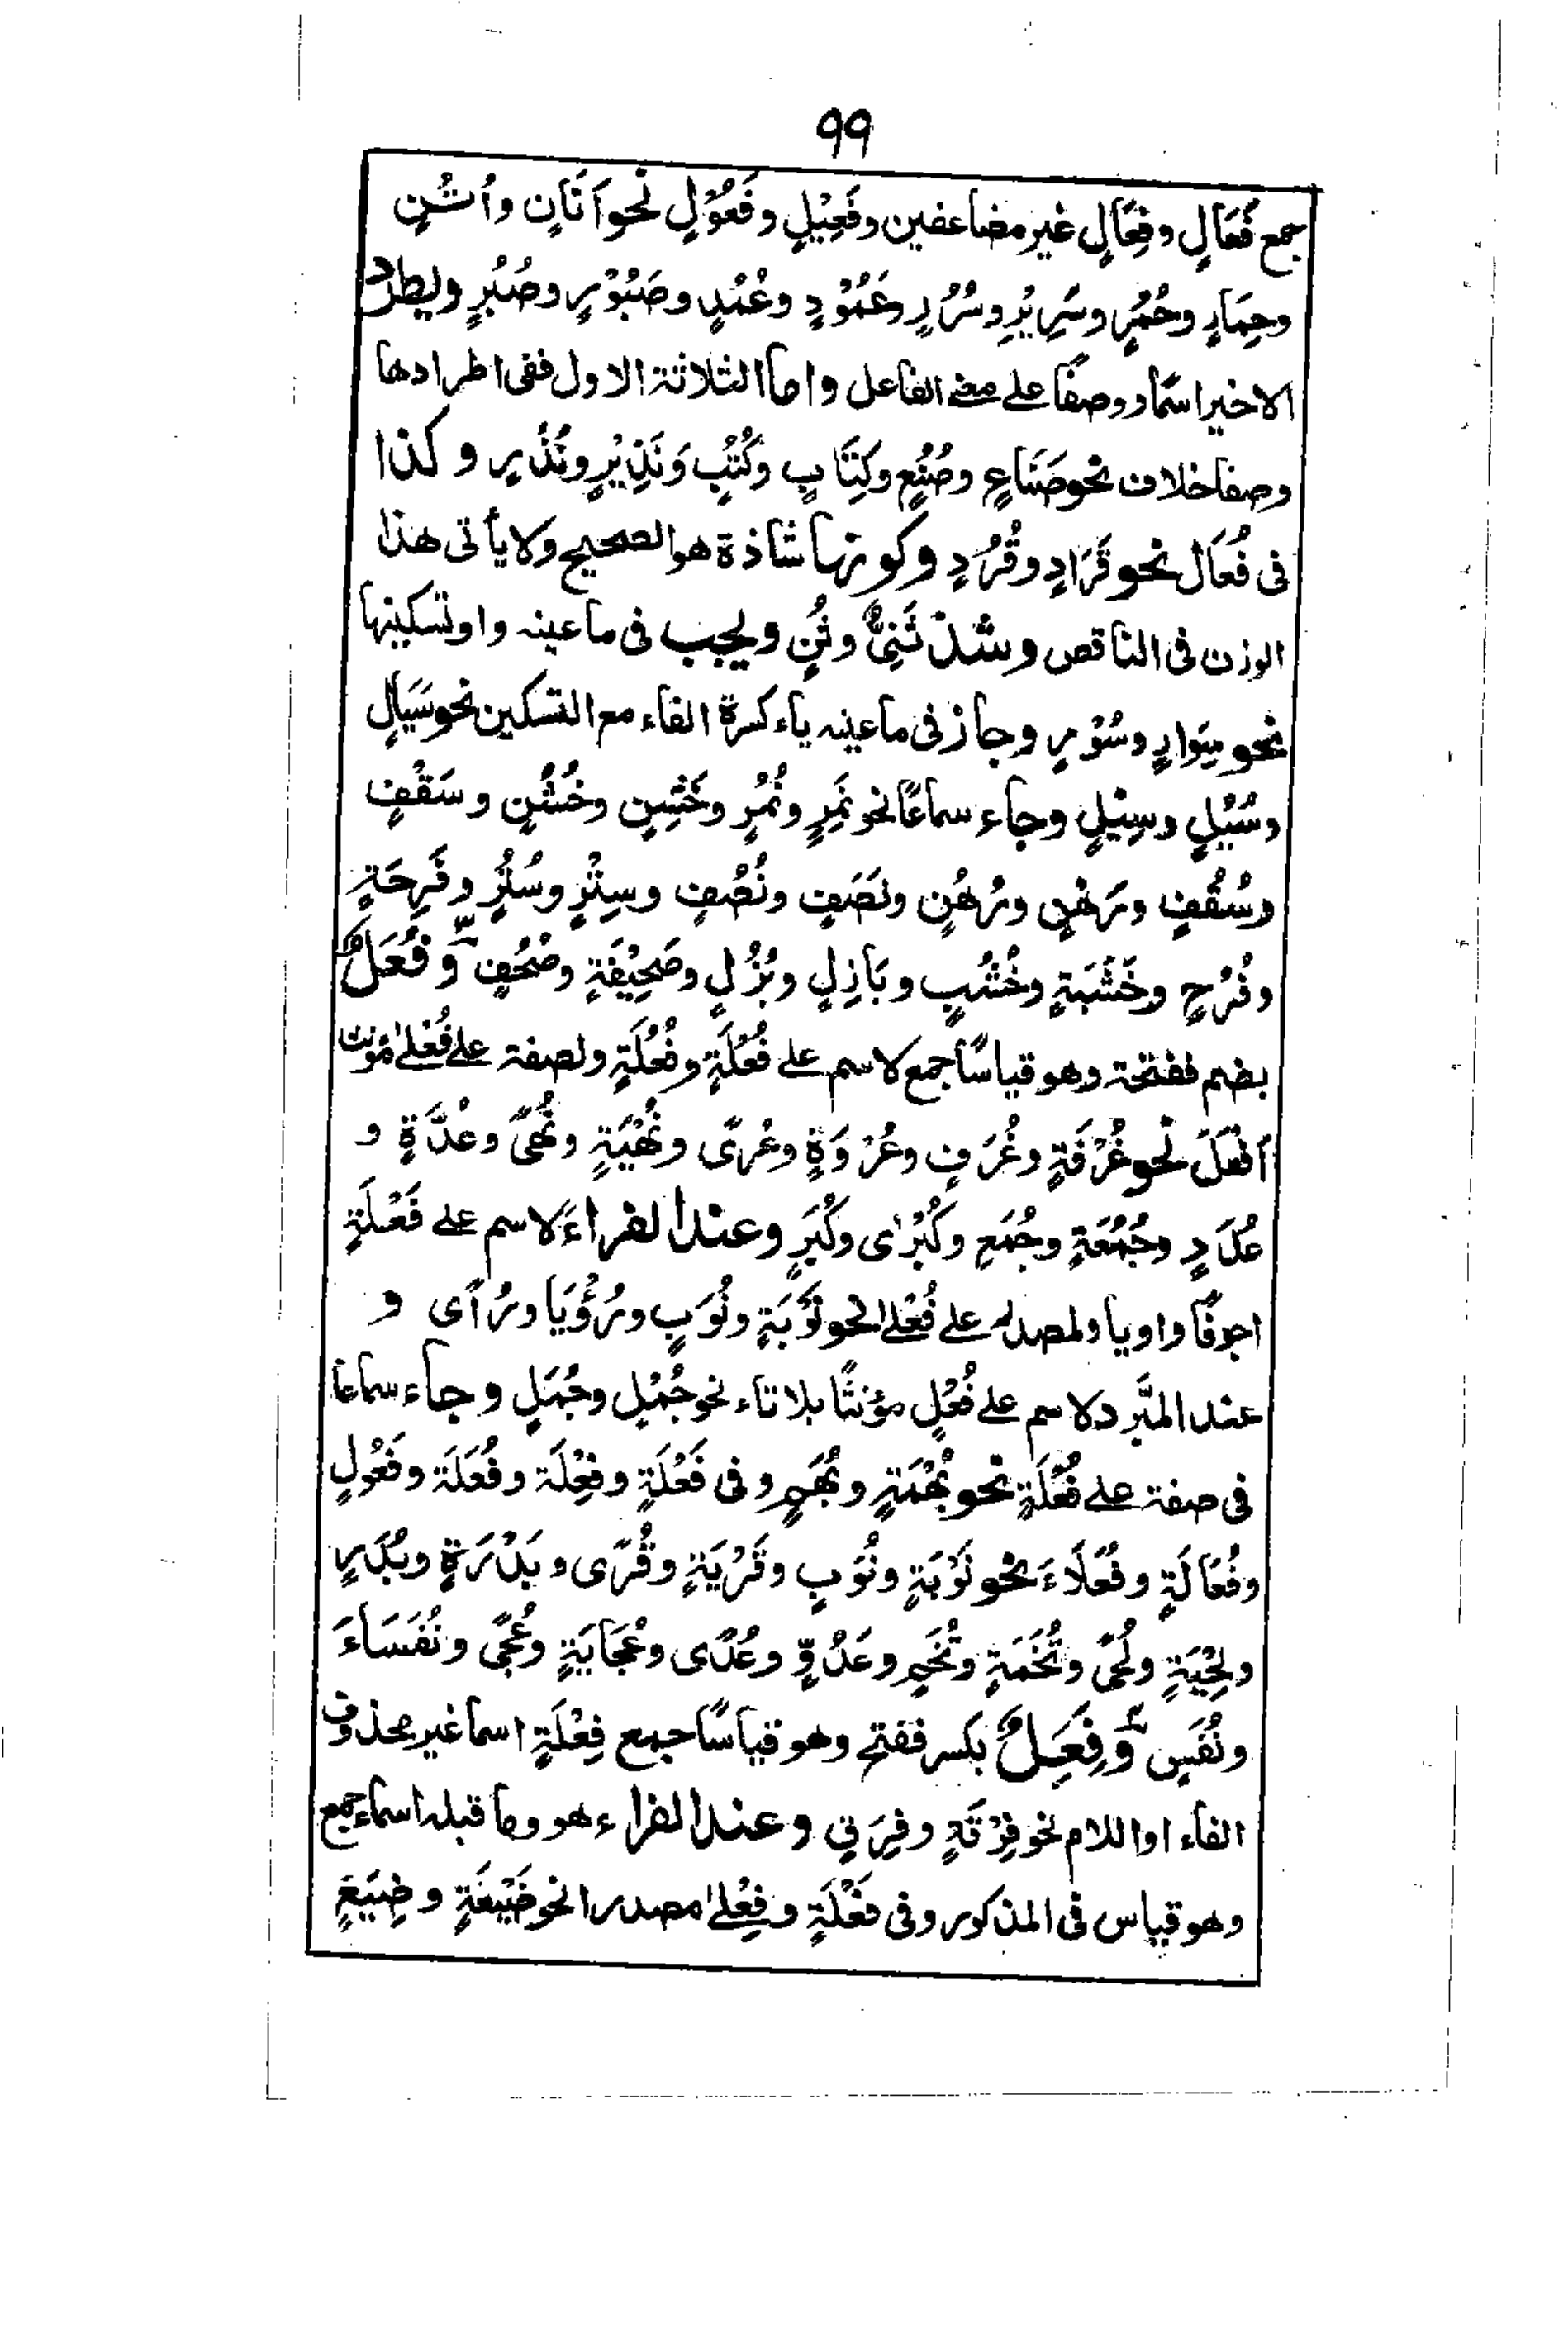 ٩٩
جمع فَعَالٍ وفِعَالٍ غير مضاعفين وفَعِيْلٍ وفَعُوْلٍ نحو اَتَانٍ واُتُنٍ
وحِمَارٍ وحُمُرٍ وسَرِيْرٍ وسُرُرٍ وعَمُوْدٍ وعُمُدٍ وصَبُوْرٍ وصُبُرٍ ويطرد
الاخير اسمًا ووصفًا على معنى الفاعل واما الثلاثة الاول ففى اطرادها
وصفا خلاف نحو صَنَاعٍ وصُنُعٍ وكِتَابٍ وكُتُبٍ وَنَذِيْرٍ ونُذُرٍ وكذا
فى فُعَال نحو قُرَادٍ وقُرُدٍ وكونها شاذة هو الصحيح ولا يأتى هذا
الوزن فى الناقص وشذ ثَنِىٌّ وثُنٍ ويجب فى ما عينه واو تسكينها
نحو سِوَارٍ وسُوْرٍ وجاز فى ما عينه ياء كسرة الفاء مع التسكين نحو سَيَالٍ
وسُيُلٍ وسِيْلٍ وجاء سماعًا نحو نَمِرٍ ونُمُرٍ وخَشِنٍ وخُشُنٍ وسَقْفٍ
وسُقُفٍ ورَهْنٍ ورُهُنٍ ونَصَفٍ ونُصُفٍ وسِتْرٍ وسُتُرٍ وفَرِحَةٍ
وفُرُحٍ وخَشَبَةٍ وخُشُبٍ وبَازِلٍ وبُزُلٍ وصَحِيْفَةٍ وصُحُفٍ وَفُعَلٌ
بضم ففتحة وهو قياسًا جمع لاسم على فُعْلَةٍ وفُعُلَةٍ ولصفة على فُعْلىٰ مؤنث
اَفْعَلَ نحو غُرْفَةٍ وغُرَفٍ وعُرْوَةٍ وعُرًى ونُهْيَةٍ ونُهًى وعُدَّةٍ و
عُدَدٍ وجُمُعَةٍ وجُمَعٍ وكُبْرٰى وكُبَرٍ وعند الفراء لاسم على فَعْلَةٍ
اجوفًا واويا ولمصدر على فُعْلىٰ نحو نَوْبَةٍ ونُوَبٍ ورُؤْيَا ورُأًى و
عند المبَرَّد لاسم على فُعْلٍ مؤنثًا بلا تاء نحو جُمْلٍ وجُمَلٍ وجاء سماعا
فى صفة على فُعْلَةٍ نحو بُهْمَةٍ وبُهَمٍ وفى فَعْلَةٍ وفِعْلَة وفُعَلَة وفَعُوْلٍ
وفُعَالَةٍ وفُعَلَاءَ نحو نَوْبَةٍ ونُوَبٍ وقَرْيَةٍ وقُرًى وبَدْرَةٍ وبُدَرٍ
ولِحْيَةٍ ولُحًى وتُخَمَةٍ وتُخَمٍ وعَدُوٍّ وعُدًى وعُجَايَةٍ وعُجًى ونُفَسَاءَ
ونُفَسٍ وَفِعَلٌ بكسر ففتح وهو قياسًا جمع فِعْلَةٍ اسما غير محذوف
الفاء او اللام نحو فِرْقَةٍ وفِرَقٍ وعند الفراء هو وما قبله اسماء جمع
وهو قياس فى المذكور وفى فَعْلَةٍ وفِعْلىٰ مصدرا نحو ضَيْعَةٍ وضِيَعٍ